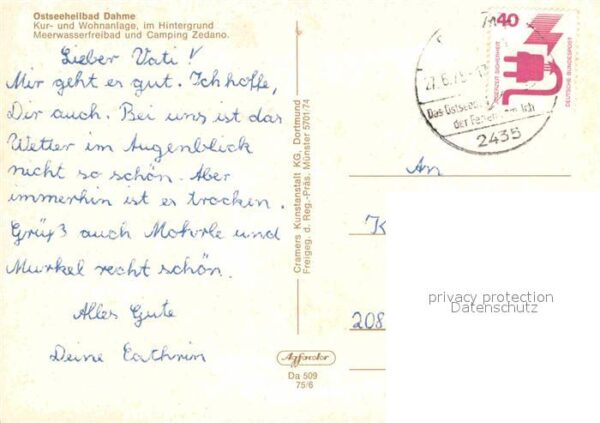 Ostseeheilbad Dahme
Kur- und Wohnanlage, im Hintergrund
Meerwasserfreibad und Camping Zedano.
Lieber Vati!
Mir geht es gut. Ich hoffe,
Dir auch. Bei uns ist das
Wetter im Augenblick
nicht so schön. Aber
immerhin ist es trocken.
Grüß auch Mohrle und
Murkel recht schön.
Alles Gute
Deine Cathrin
Cramers Kunstanstalt KG, Dortmund
Freigeg. d. Reg.-Präs. Münster 5701/74
Agfacolor
Da 509
75/6
40
JEDERZEIT SICHERHEIT
DEUTSCHE BUNDESPOST
27.6.
Das Ostsee
der
2435
An
K
208
privacy protection
Datenschutz